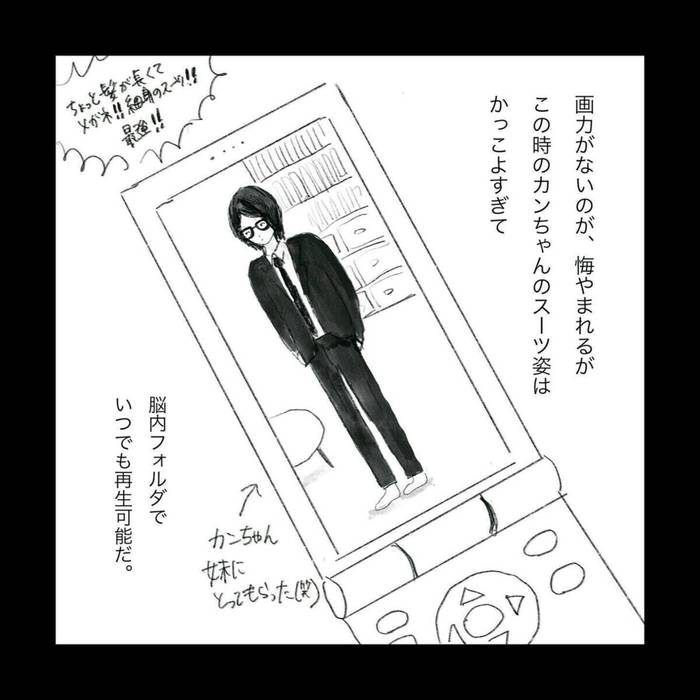 画力がないのが、悔やまれるが
この時のカンちゃんのスーツ姿は
かっこよすぎて
ちょっと髪が長くて
メガネ!!細身のスーツ!!
最強!!
脳内フォルダで
いつでも再生可能だ。
カンちゃん
妹に
とってもらった(笑)